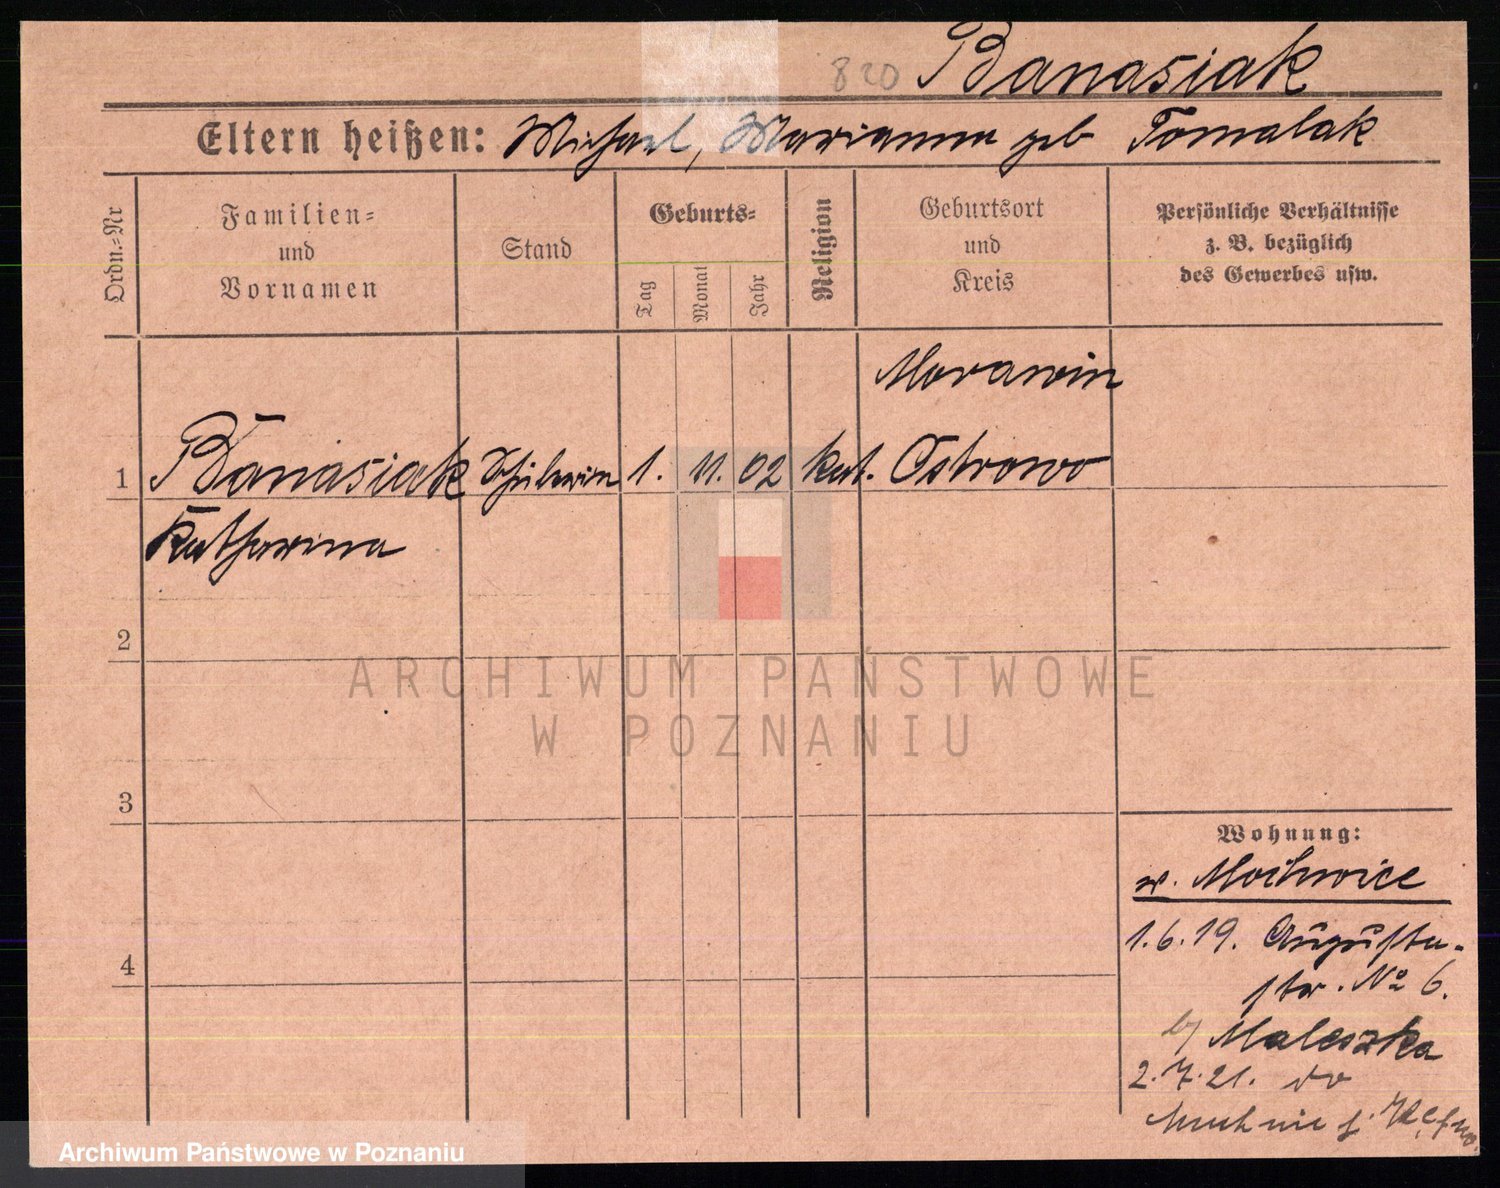 820 Banasiak
Eltern heißen: Michael, Marianna geb Tomalak
Ordn.-Nr
Familien- und Vornamen
Stand
Geburts-
Tag
Monat
Jahr
Religion
Geburtsort und Kreis
Persönliche Verhältnisse z. B. bezüglich des Gewerbes usw.
Morawin
1 Banasiak Schülerin 1. 11. 02 kat. Ostrowo
Katharina
2
ARCHIWUM PAŃSTWOWE
W POZNANIU
3
Wohnung:
4
1.6.19. Augusta-
str. No 6.
b/ Maleszka
2.7.21. do
Archiwum Państwowe w Poznaniu